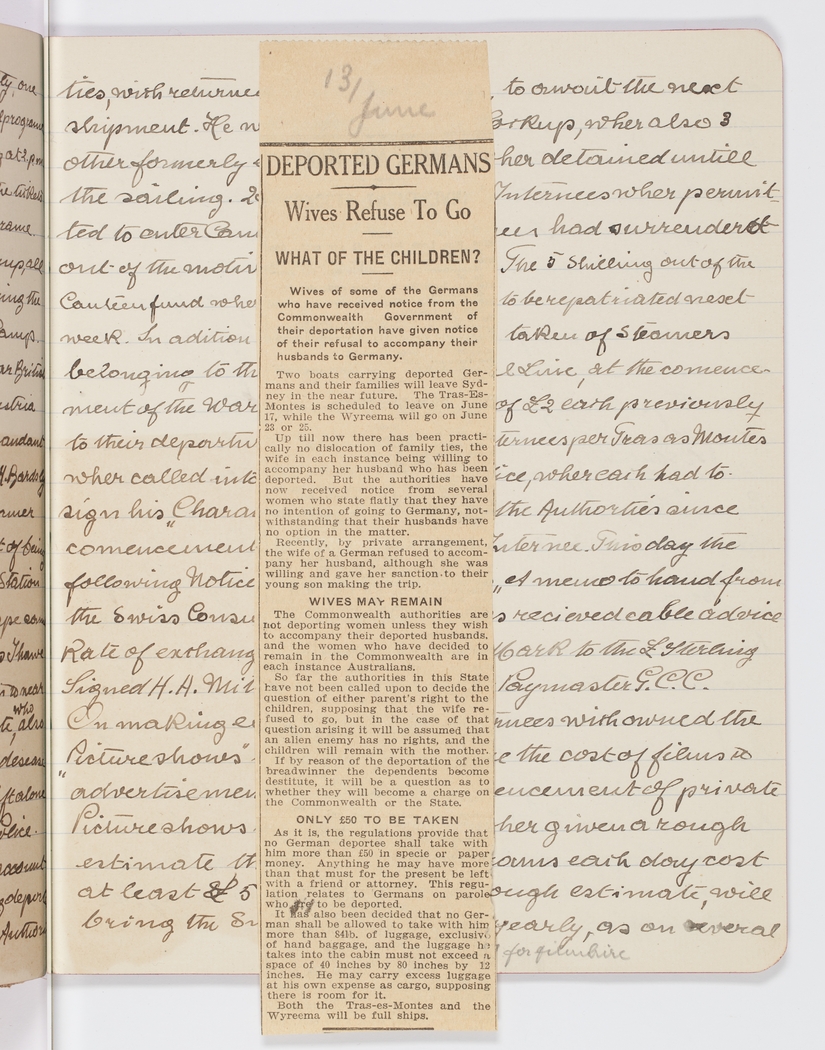 13/
June
DEPORTED GERMANS
Wives Refuse To Go
WHAT OF THE CHILDREN?
Wives of some of the Germans
who have received notice from the
Commonwealth Government of
their deportation have given notice
of their refusal to accompany their
husbands to Germany.
Two boats carrying deported Ger-
mans and their families will leave Syd-
ney in the near future. The Tras-Es-
Montes is scheduled to leave on June
17, while the Wyreema will go on June
23 or 25.
Up till now there has been practi-
cally no dislocation of family ties, the
wife in each instance being willing to
accompany her husband who has been
deported. But the authorities have
now received notice from several
women who state flatly that they have
no intention of going to Germany, not-
withstanding that their husbands have
no option in the matter.
Recently, by private arrangement,
the wife of a German refused to accom-
pany her husband, although she was
willing and gave her sanction to their
young son making the trip.
WIVES MAY REMAIN
The Commonwealth authorities are
not deporting women unless they wish
to accompany their deported husbands,
and the women who have decided to
remain in the Commonwealth are in
each instance Australians.
So far the authorities in this State
have not been called upon to decide the
question of either parent's right to the
children, supposing that the wife re-
fused to go, but in the case of that
question arising it will be assumed that
an alien enemy has no rights, and the
children will remain with the mother.
If by reason of the deportation of the
breadwinner the dependents become
destitute, it will be a question as to
whether they will become a charge on
the Commonwealth or the State.
ONLY £50 TO BE TAKEN
As it is, the regulations provide that
no German deportee shall take with
him more than £50 in specie or paper
money. Anything he may have more
than that must for the present be left
with a friend or attorney. This regu-
lation relates to Germans on parole
who to be deported.
It has also been decided that no Ger-
man shall be allowed to take with him
more than 84lb. of luggage, exclusive
of hand baggage, and the luggage he
takes into the cabin must not exceed a
space of 40 inches by 80 inches by 12
inches. He may carry excess luggage
at his own expense as cargo, supposing
there is room for it.
Both the Tras-es-Montes and the
Wyreema will be full ships.
ties, with returne to await the next
shipment. He wher also 3
other formerly her detained untill
the sailing. Internees wher permit-
ted to enter Cam had surrenderd
out of the The 5 Shilling out of the
Canteen fund whe to be repatriated next
week. In adition taken of Steamers
belonging to th Line, at the comence-
ment of the War of £2 each previously
to their departu ternees per Tras as Montes
wher called into ice, wher each had to
sign his "Charac the Authorties since
comencement Internee. This day the
following Notice "A memo to hand from
the Swiss Consu recieved cable advice
Rate of exchang Mark to the £ Sterling
Signed H.A. Mil Paymaster G.C.C.
On making en rnees with owned the
Pictureshows" e the cost of films to
"advertisemen encement of private
Pictureshows her given a rough
estimate th each day cost
at least £5 ough estimate, will
bring the Su yearly, as on several
for filmhire